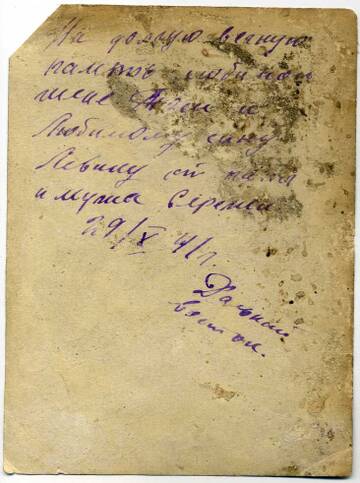 На долгую вечную
память любимой
жене и
Любимому сыну
от папы
и мужа Сережи
29/X 41 г.
Дальний
восток.